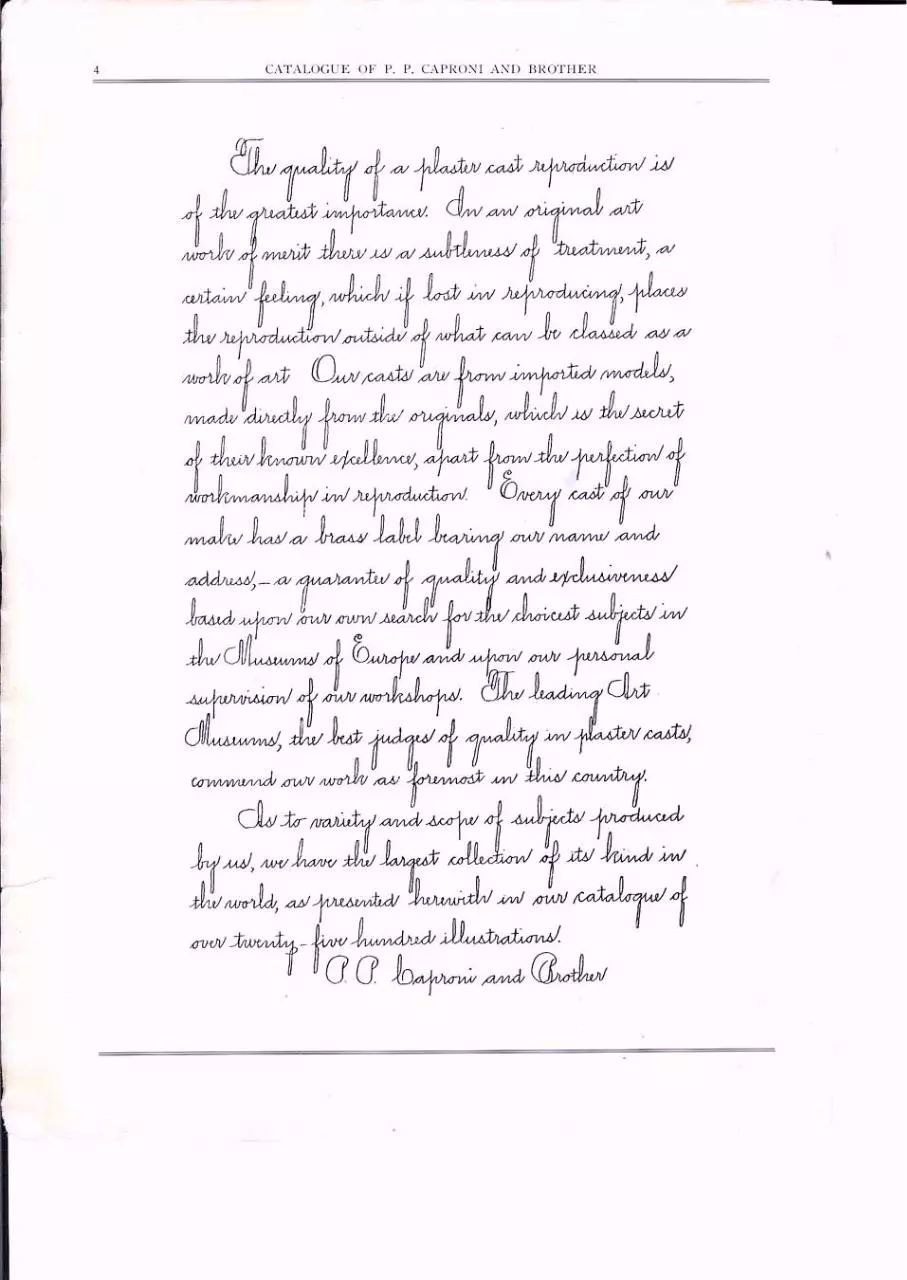 4 CATALOGUE OF P. P. CAPRONI AND BROTHER
The quality of a plaster cast reproduction is
of the greatest importance. In an original art
work of merit there is a subtleness of treatment, a
certain feeling, which if lost in reproducing, places
the reproduction outside of what can be classed as a
work of art Our casts are from imported models,
made directly from the originals, which is the secret
of their known excellence, apart from the perfection of
workmanship in reproduction. Every cast of our
make has a brass label bearing our name and
address,– a guarantee of quality and exclusiveness
based upon our own search for the choicest subjects in
the Museums of Europe and upon our personal
supervision of our workshops. The leading Art
Museums, the best judges of quality in plaster casts,
commend our work as foremost in this country.
As to variety and scope of subjects produced
by us, we have the largest collection of its kind in
the world, as presented herewith in our catalogue of
over twenty-five hundred illustrations.
P. P. Caproni and Brother